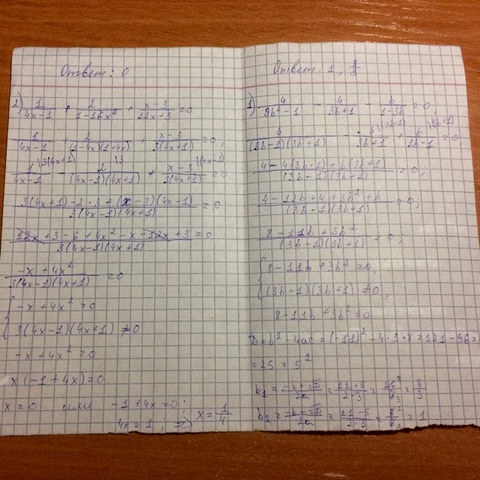 Ответ: 0
2) 1/(4x-1) + 2/(1-16x²) + (x-3)/(12x+3) = 0
1/(4x-1) + 2/((1-4x)(1+4x)) + (x-3)/(3(4x+1)) = 0,
(3(4x+1) - 2·3 + (x-3)(4x-1))/(3(4x-1)(4x+1)) = 0
(12x+3-6+4x²-x-12x+3)/(3(4x-1)(4x+1)) = 0
(-x+4x²)/(3(4x-1)(4x+1)) = 0
{ -x+4x² = 0
3(4x-1)(4x+1) ≠ 0
-x+4x² = 0
x(-1+4x) = 0
x = 0 или -1+4x = 0;
4x = 1, => x = 1/4
Ответ: 1;
1) 4/(9b²-1) - 4/(3b+1) - b/(1-3b) = 0,
(4-4(3b-1)+b(3b+1))/((3b-1)(3b+1)) = 0,
(4-12b+4+3b²+b)/((3b-1)(3b+1)) = 0,
(8-11b+3b²)/((3b-1)(3b+1)) = 0,
{ 8-11b+3b² = 0,
(3b-1)(3b+1) ≠ 0,
8-11b+3b² = 0
D = b²-4ac = (-11)²-4·3·8 = 121-96 =
= 25 = 5²